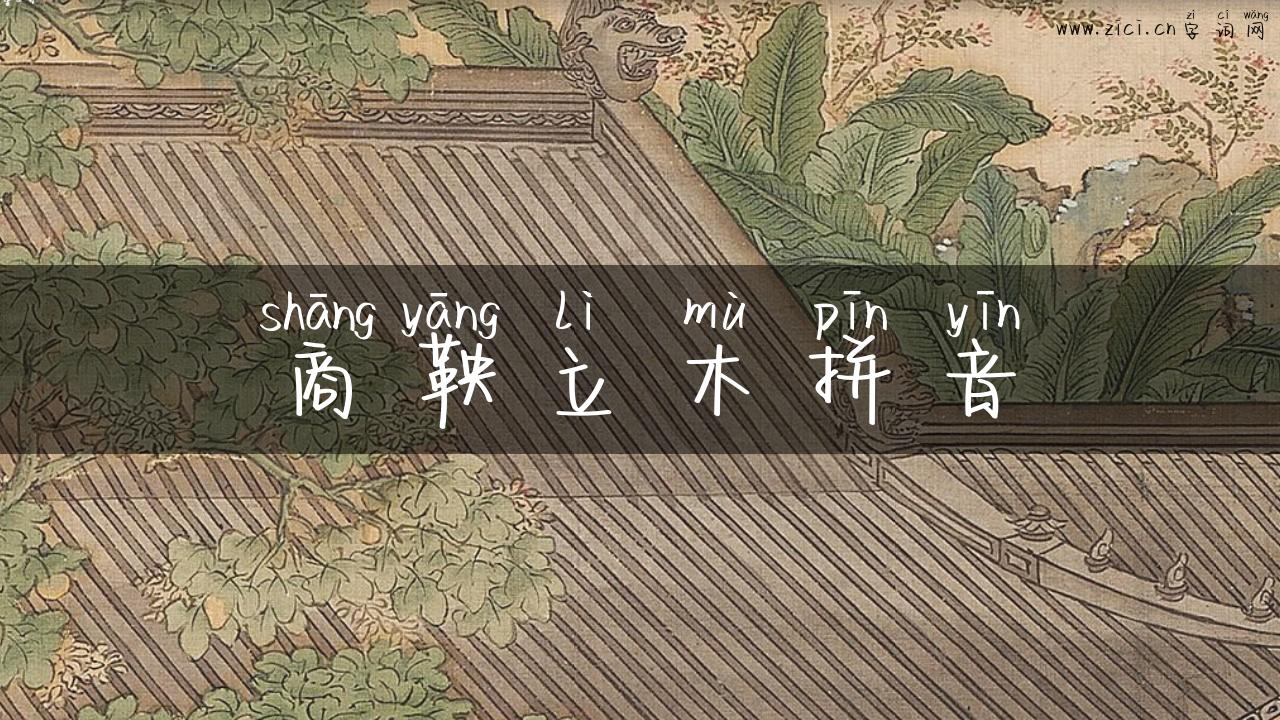 www.zici.cn zì cí wǎng
字词网
shāng yāng lì mù pīn yīn
商鞅立木拼音